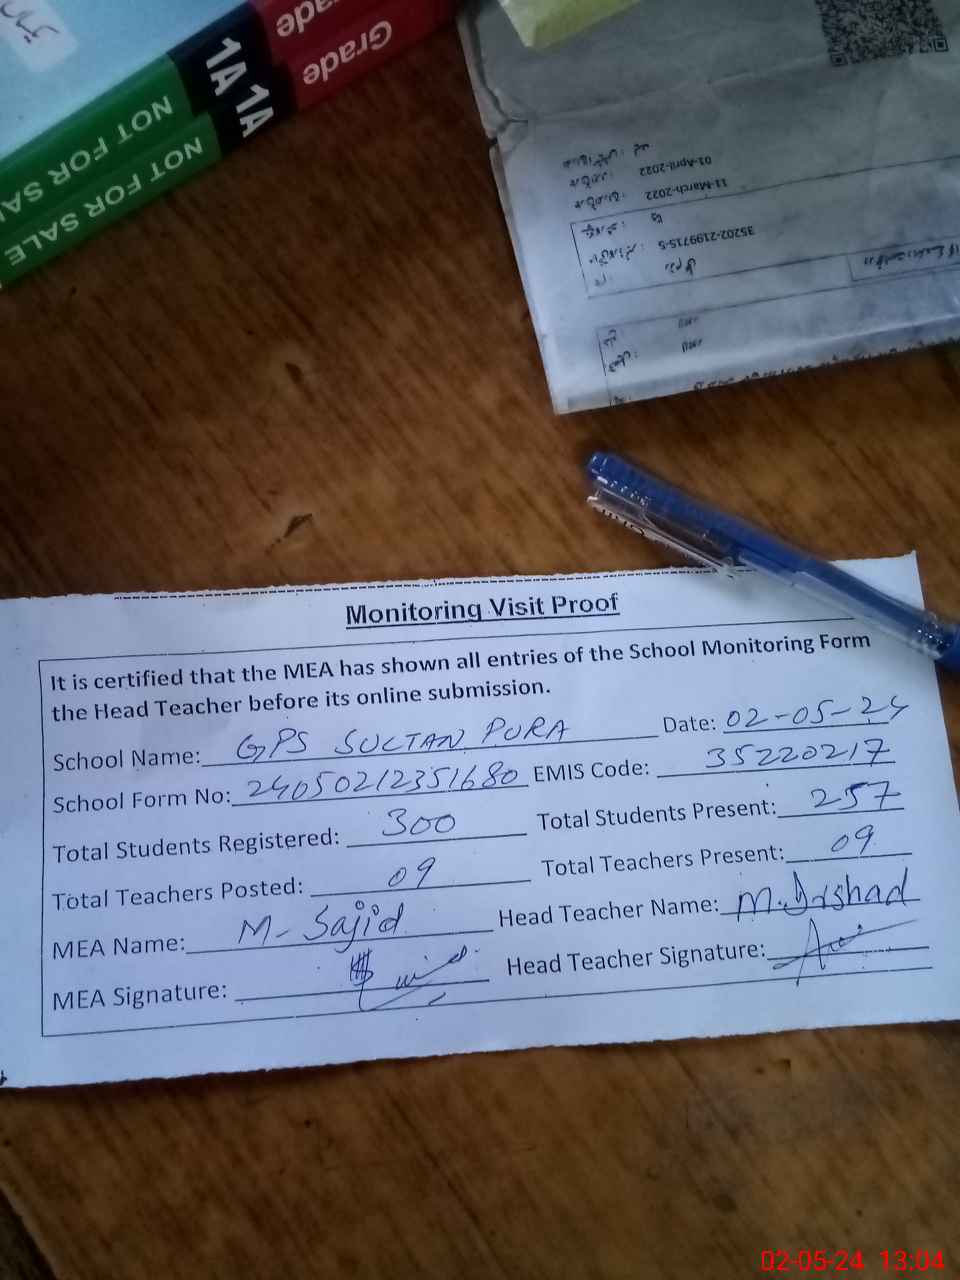 Grade
Grade
1A
1A
NOT FOR SAL
NOT FOR SALE
01-April-2022
11-March-2022
35202-2199715-5
Monitoring Visit Proof
It is certified that the MEA has shown all entries of the School Monitoring Form
the Head Teacher before its online submission.
School Name: GPS SULTAN PURA Date: 02-05-24
School Form No: 24050212351680 EMIS Code: 35220217
Total Students Registered: 300 Total Students Present: 257
Total Teachers Posted: 09 Total Teachers Present: 09
MEA Name: M- Sajid Head Teacher Name: M. Irshad
MEA Signature: Head Teacher Signature:
02-05-24 13:04